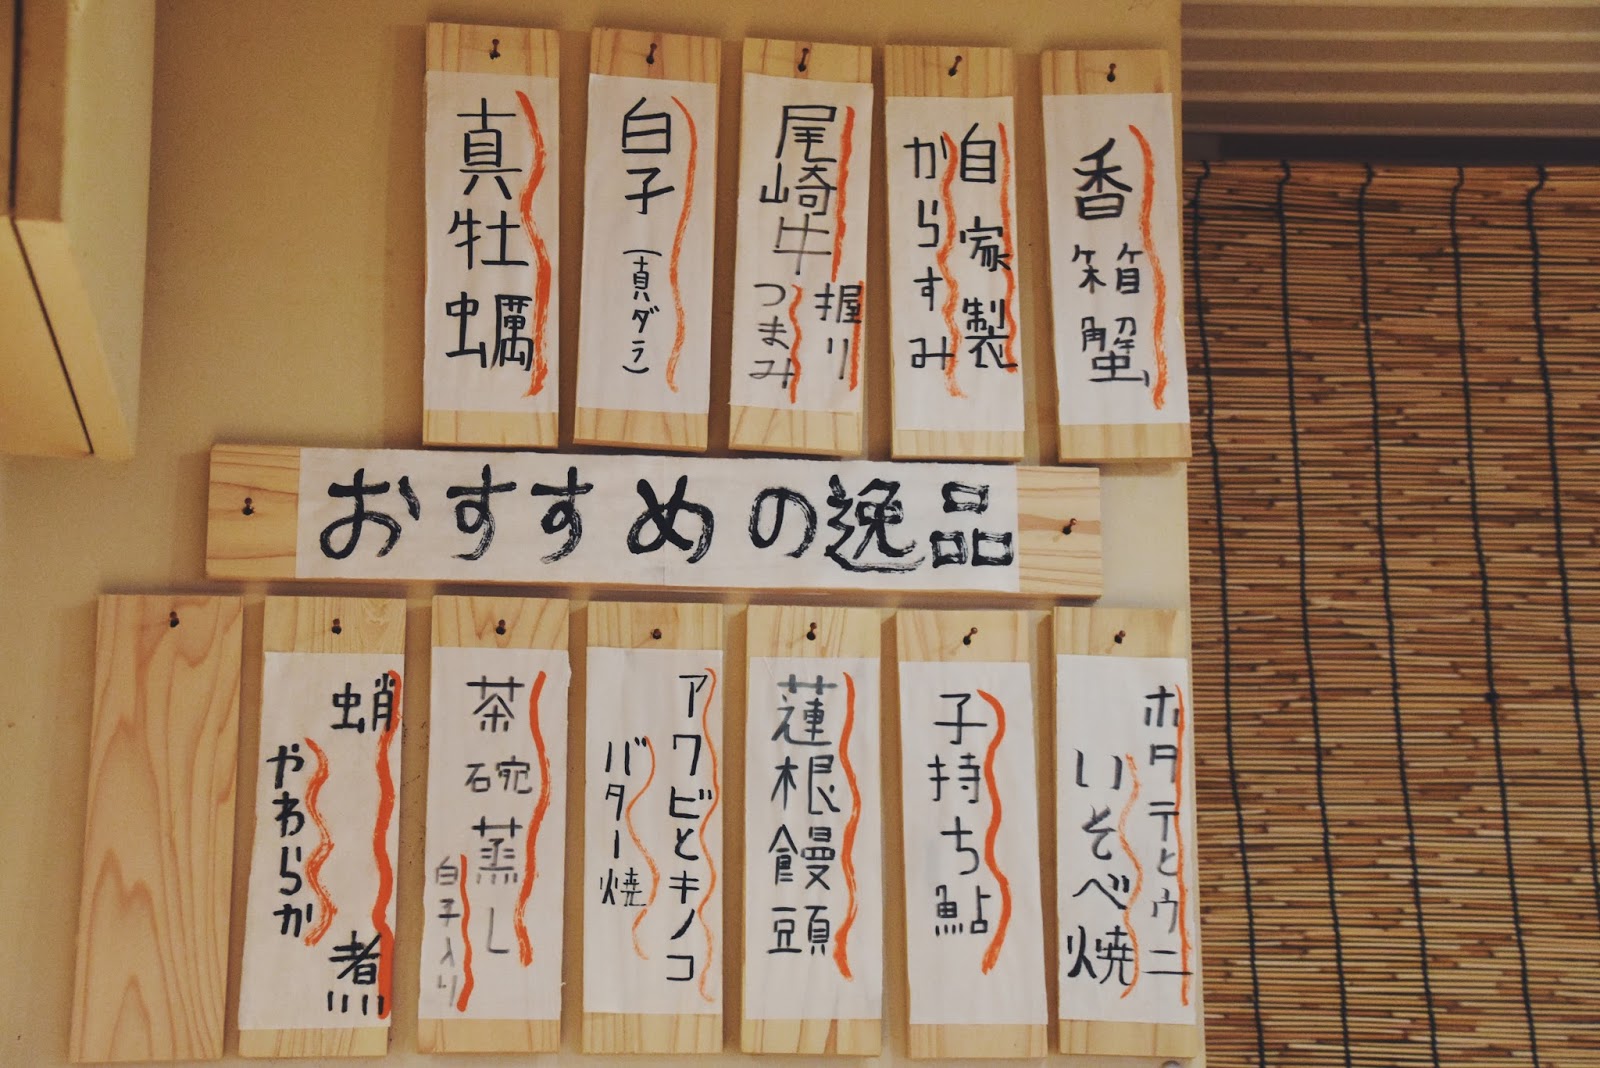 香箱蟹
自家製
からすみ
尾崎牛
握り
つまみ
白子(真ダラ)
真牡蠣
おすすめの逸品
ホタテとウニ
いそべ焼
子持ち鮎
蓮根饅頭
アワビとキノコ
バター焼
茶碗蒸し
白子入り
蛸煮
やわらか